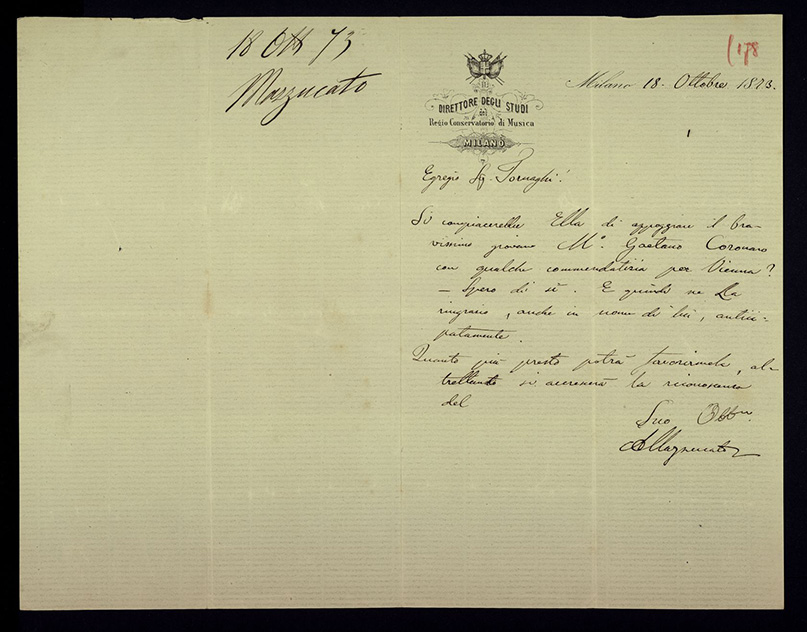 18 Ott 73
Mazzucato
(178
IL
DIRETTORE DEGLI STUDI
del
Regio Conservatorio di Musica
MILANO
Milano 18. Ottobre 1873.
Egregio Sig. Tornaghi!
Si compiacerebbe Ella di appoggiare il bra-
vissimo giovane M.o Gaetano Coronaro
con qualche commendatizia per Vienna?
— Spero di sì. E quindi ne La
ringrazio, anche in nome di lui, antici-
patamente.
Quanto più presto potrà favorirmela, al-
trettanto si accrescerà la riconoscenza
del
Suo Obb.mo
AMazzucato